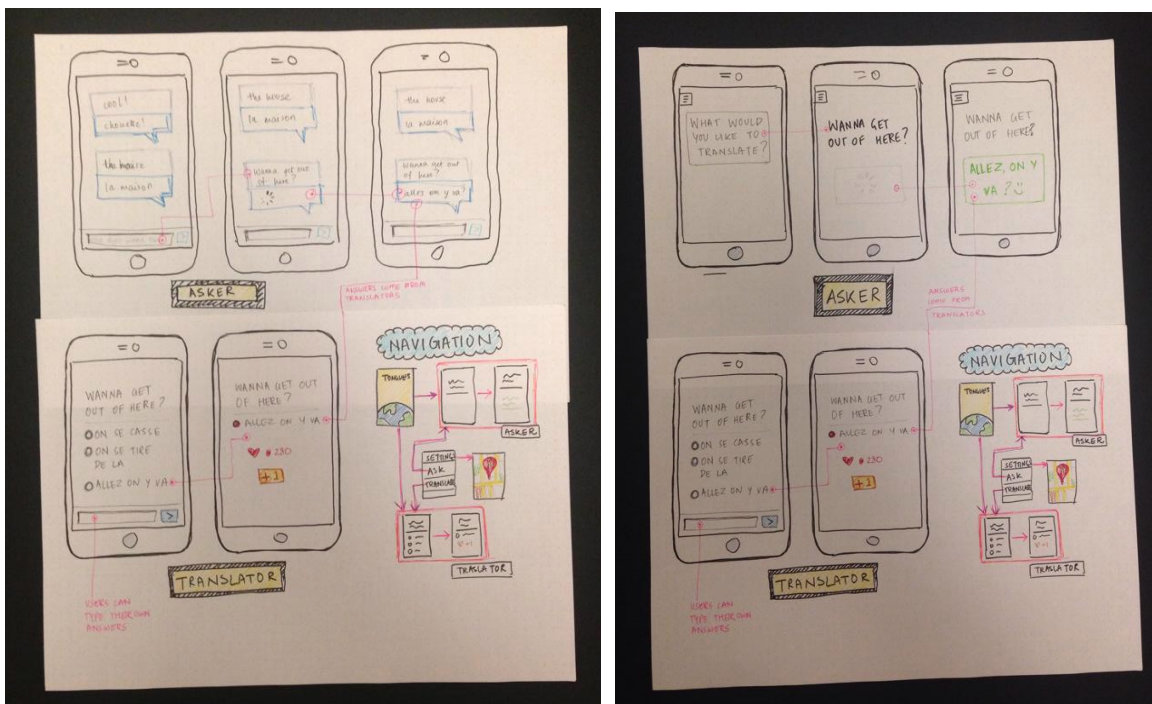 cool!
chouette!
the house
la maison
the house
la maison
Wanna get out
of here?
the house
la maison
Wanna get out
of here?
allez on y va?
ASKER
ANSWERS COME FROM
TRANSLATORS
WANNA GET
OUT OF HERE?
ON SE CASSE
ON SE TIRE
DE LA
ALLEZ ON Y VA
USERS CAN
TYPE THEIR OWN
ANSWERS
WANNA GET OUT
OF HERE?
ALLEZ ON Y VA
230
+1
TRANSLATOR
NAVIGATION
TONGUES
ASKER
SETTINGS
ASK
TRANSLATE
TRASLATOR
WHAT WOULD
YOU LIKE TO
TRANSLATE?
WANNA GET
OUT OF HERE?
WANNA GET
OUT OF HERE?
ALLEZ, ON Y
VA ?
ASKER
ANSWERS
COME FROM
TRANSLATORS
WANNA GET
OUT OF HERE?
ON SE CASSE
ON SE TIRE
DE LA
ALLEZ ON Y VA
USERS CAN
TYPE THEIR OWN
ANSWERS
WANNA GET OUT
OF HERE?
ALLEZ ON Y VA
230
+1
TRANSLATOR
NAVIGATION
TONGUES
ASKER
SETTINGS
ASK
TRANSLATE
TRASLATOR